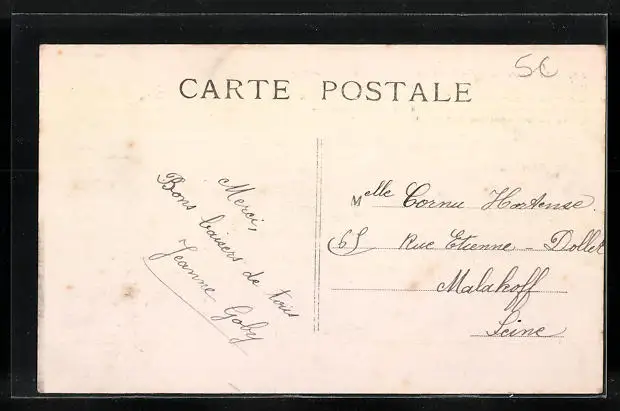 5C
CARTE POSTALE
Merci,
Bons baisers de tous
Jeanne Goby
Melle Cornu Hortense.
65 Rue Etienne - Dollet
Malakoff
Seine